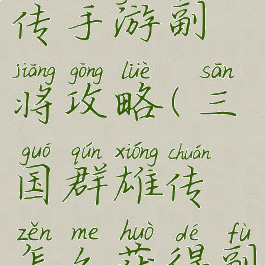 传手游副
jiāng gōng lüè sān
将攻略(三
guó qún xióng chuán
国群雄传
zěn me huò dé fù
怎么获得副